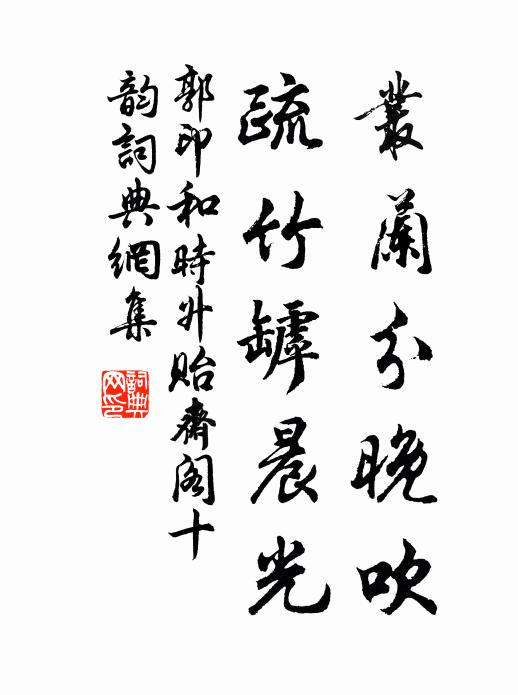 叢蘭分晚吹
疏竹罅晨光
郭印和時升貽齋閣十
韵詞典網集
詞典
网印